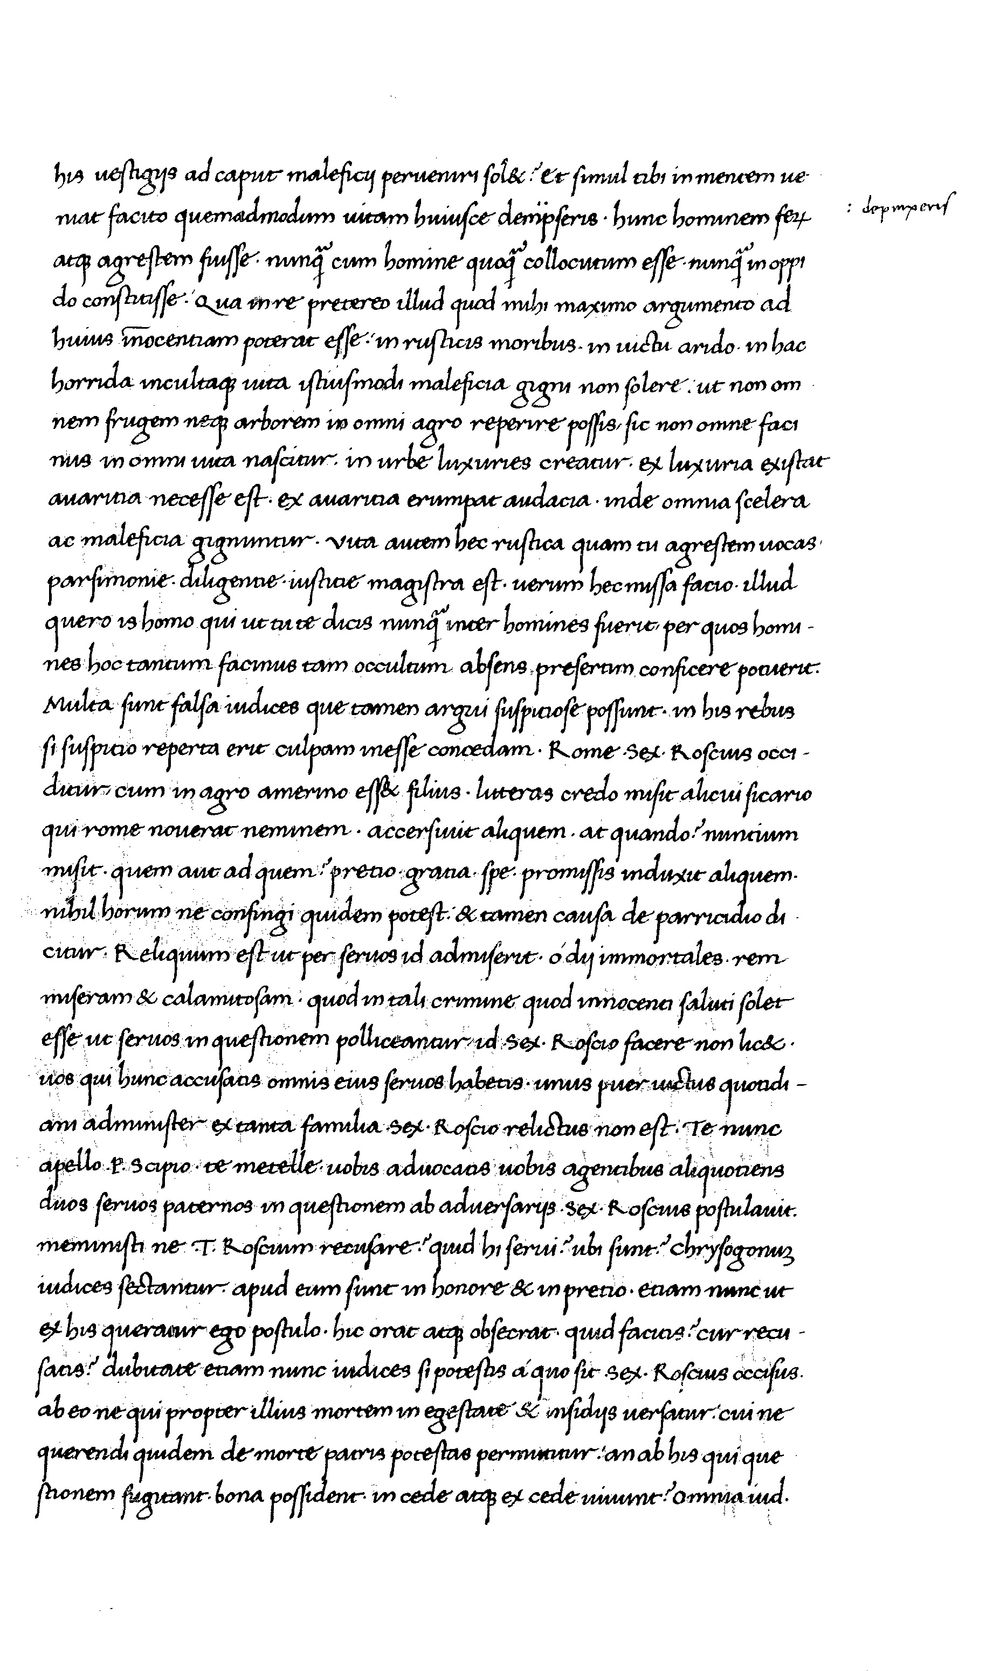 his vestigiis ad caput maleficii perveniri sol&? Et simul tibi in mentem ve
niat facito quemadmodum vitam huiusce dempseris · hunc hominem feꝝ
: depinxeris
atqꝫ agrestem fuisse · nunqͣ cum homine quoqͣ collocutum esse · nunqͣ in oppi
do constitisse · Qua in re pretereo illud quod mihi maximo argumento ad
huius īnocentiam poterat esse · in rusticis moribus · in victu arido · in hac
horrida incultaqꝫ vita istiusmodi maleficia gigni non solere · ut non om
nem frugem neqꝫ arborem in omni agro reperire possis, sic non omne faci
nus in omni vita nascitur · in urbe luxuries creatur · ex luxuria existat
avaritia necesse est · ex avaritia erumpat audacia · inde omnia scelera
ac maleficia gignuntur · Vita autem hec rustica quam tu agrestem vocas ·
parsimonie · diligentie · iusticie magistra est · verum hec missa facio · illud
quero is homo qui ut tu te dicis nunqͣ inter homines fuerit, per quos homi -
nes hoc tantum facinus tam occultum absens presertim conficere potuerit.
Multa sunt falsa iudices que tamen argui suspiciose possunt · in his rebus
si suspitio reperta erit culpam inesse concedam · Rome · Sex · Roscius occi -
ditur, cum in agro amerino ess& filius · litteras credo misit alicui sicario
qui rome noverat neminem · accersivit aliquem · at quando? nuntium
misit · quem aut ad quem? pretio · gratia · spe · promissis induxit aliquem ·
nihil horum ne confingi quidem potest · & tamen causa de parricidio di
citur · Reliquum est ut per servos id admiserit · ó dii immortales · rem
miseram & calamitosam · quod in tali crimine quod innocenti saluti solet
esse ut servos in questionem polliceantur, id · Sex · Roscio facere non lic& ·
vos qui hunc accusatis omnis eius servos habetis · unus puer victus quotidi -
ani administer ex tanta familia · Sex · Roscio relictus non est · Te nunc
apello · P. Scipio · te metelle · vobis advocatis vobis agentibus aliquotiens
duos servos paternos in questionem ab adversariis · Sex · Roscius postulavit.
meministi ne · T. Roscium recusare? quid hi servi? ubi sunt? Chrysogonuꝫ
iudices sectantur · apud eum sunt in honore & in pretio · etiam nunc ut
ex his queratur ego postulo · hic orat atqꝫ obsecrat · quid facitis? cur recu -
satis? dubitate etiam nunc iudices si potestis á quo sit · Sex · Roscius occisus ·
ab eo ne qui propter illius mortem in egestate & insidiis versatur · cui ne
querendi quidem de morte patris potestas permittitur · an ab his qui que
stionem fugitant · bona possident · in cede atqꝫ ex cede vivunt? Omnia iud ·